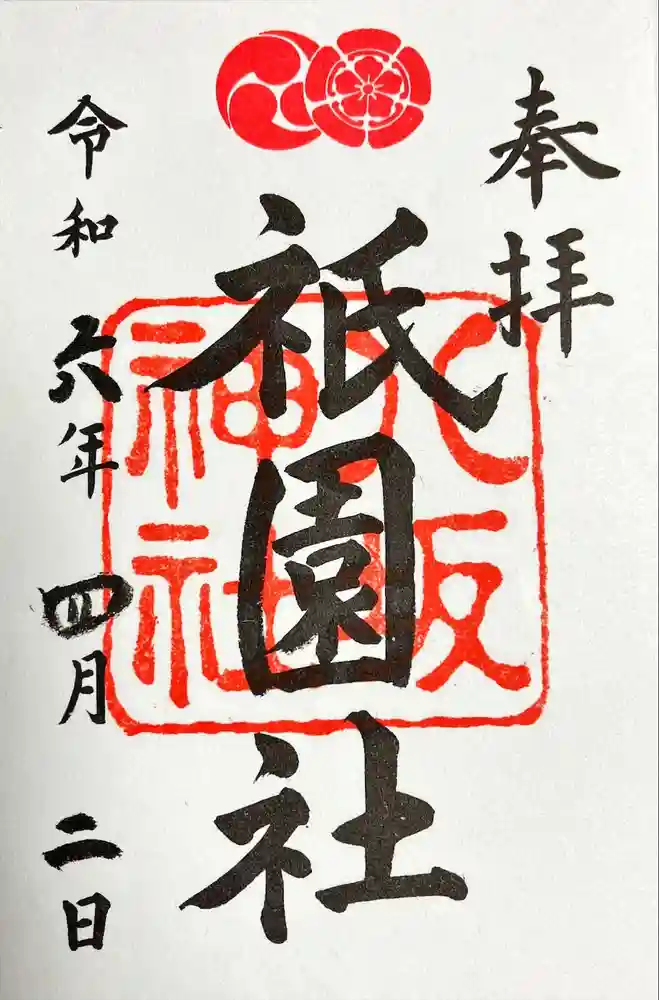 奉拝
祇園社
八坂
神社
令和六年四月二日